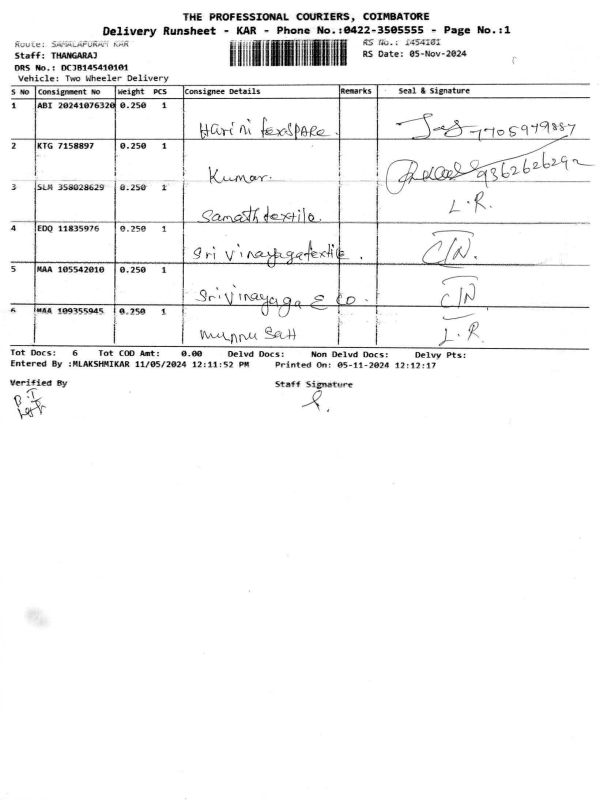 THE PROFESSIONAL COURIERS, COIMBATORE
Delivery Runsheet - KAR - Phone No.:0422-3505555 - Page No.:1
Route: SAMALAPURAM KAR RS No.: 1454101
Staff: THANGARAJ RS Date: 05-Nov-2024
DRS No.: DCJB145410101
Vehicle: Two Wheeler Delivery
S No Consignment No Weight PCS Consignee Details Remarks Seal & Signature
1 ABI 20241076320 0.250 1
Harini texSPARe. 7705979887
2 KTG 7158897 0.250 1
Kumar. 9362626292
3 SLM 358028629 0.250 1
Samathtextile. L.R.
4 EDQ 11835976 0.250 1
Sri Vinayagatextile. C/N.
5 MAA 105542010 0.250 1
Srivinayaga & CO. C/N
6 MAA 109355945 0.250 1
munnu sah L.R.
Tot Docs: 6 Tot COD Amt: 0.00 Delvd Docs: Non Delvd Docs: Delvy Pts:
Entered By :MLAKSHMIKAR 11/05/2024 12:11:52 PM Printed On: 05-11-2024 12:12:17
Verified By Staff Signature